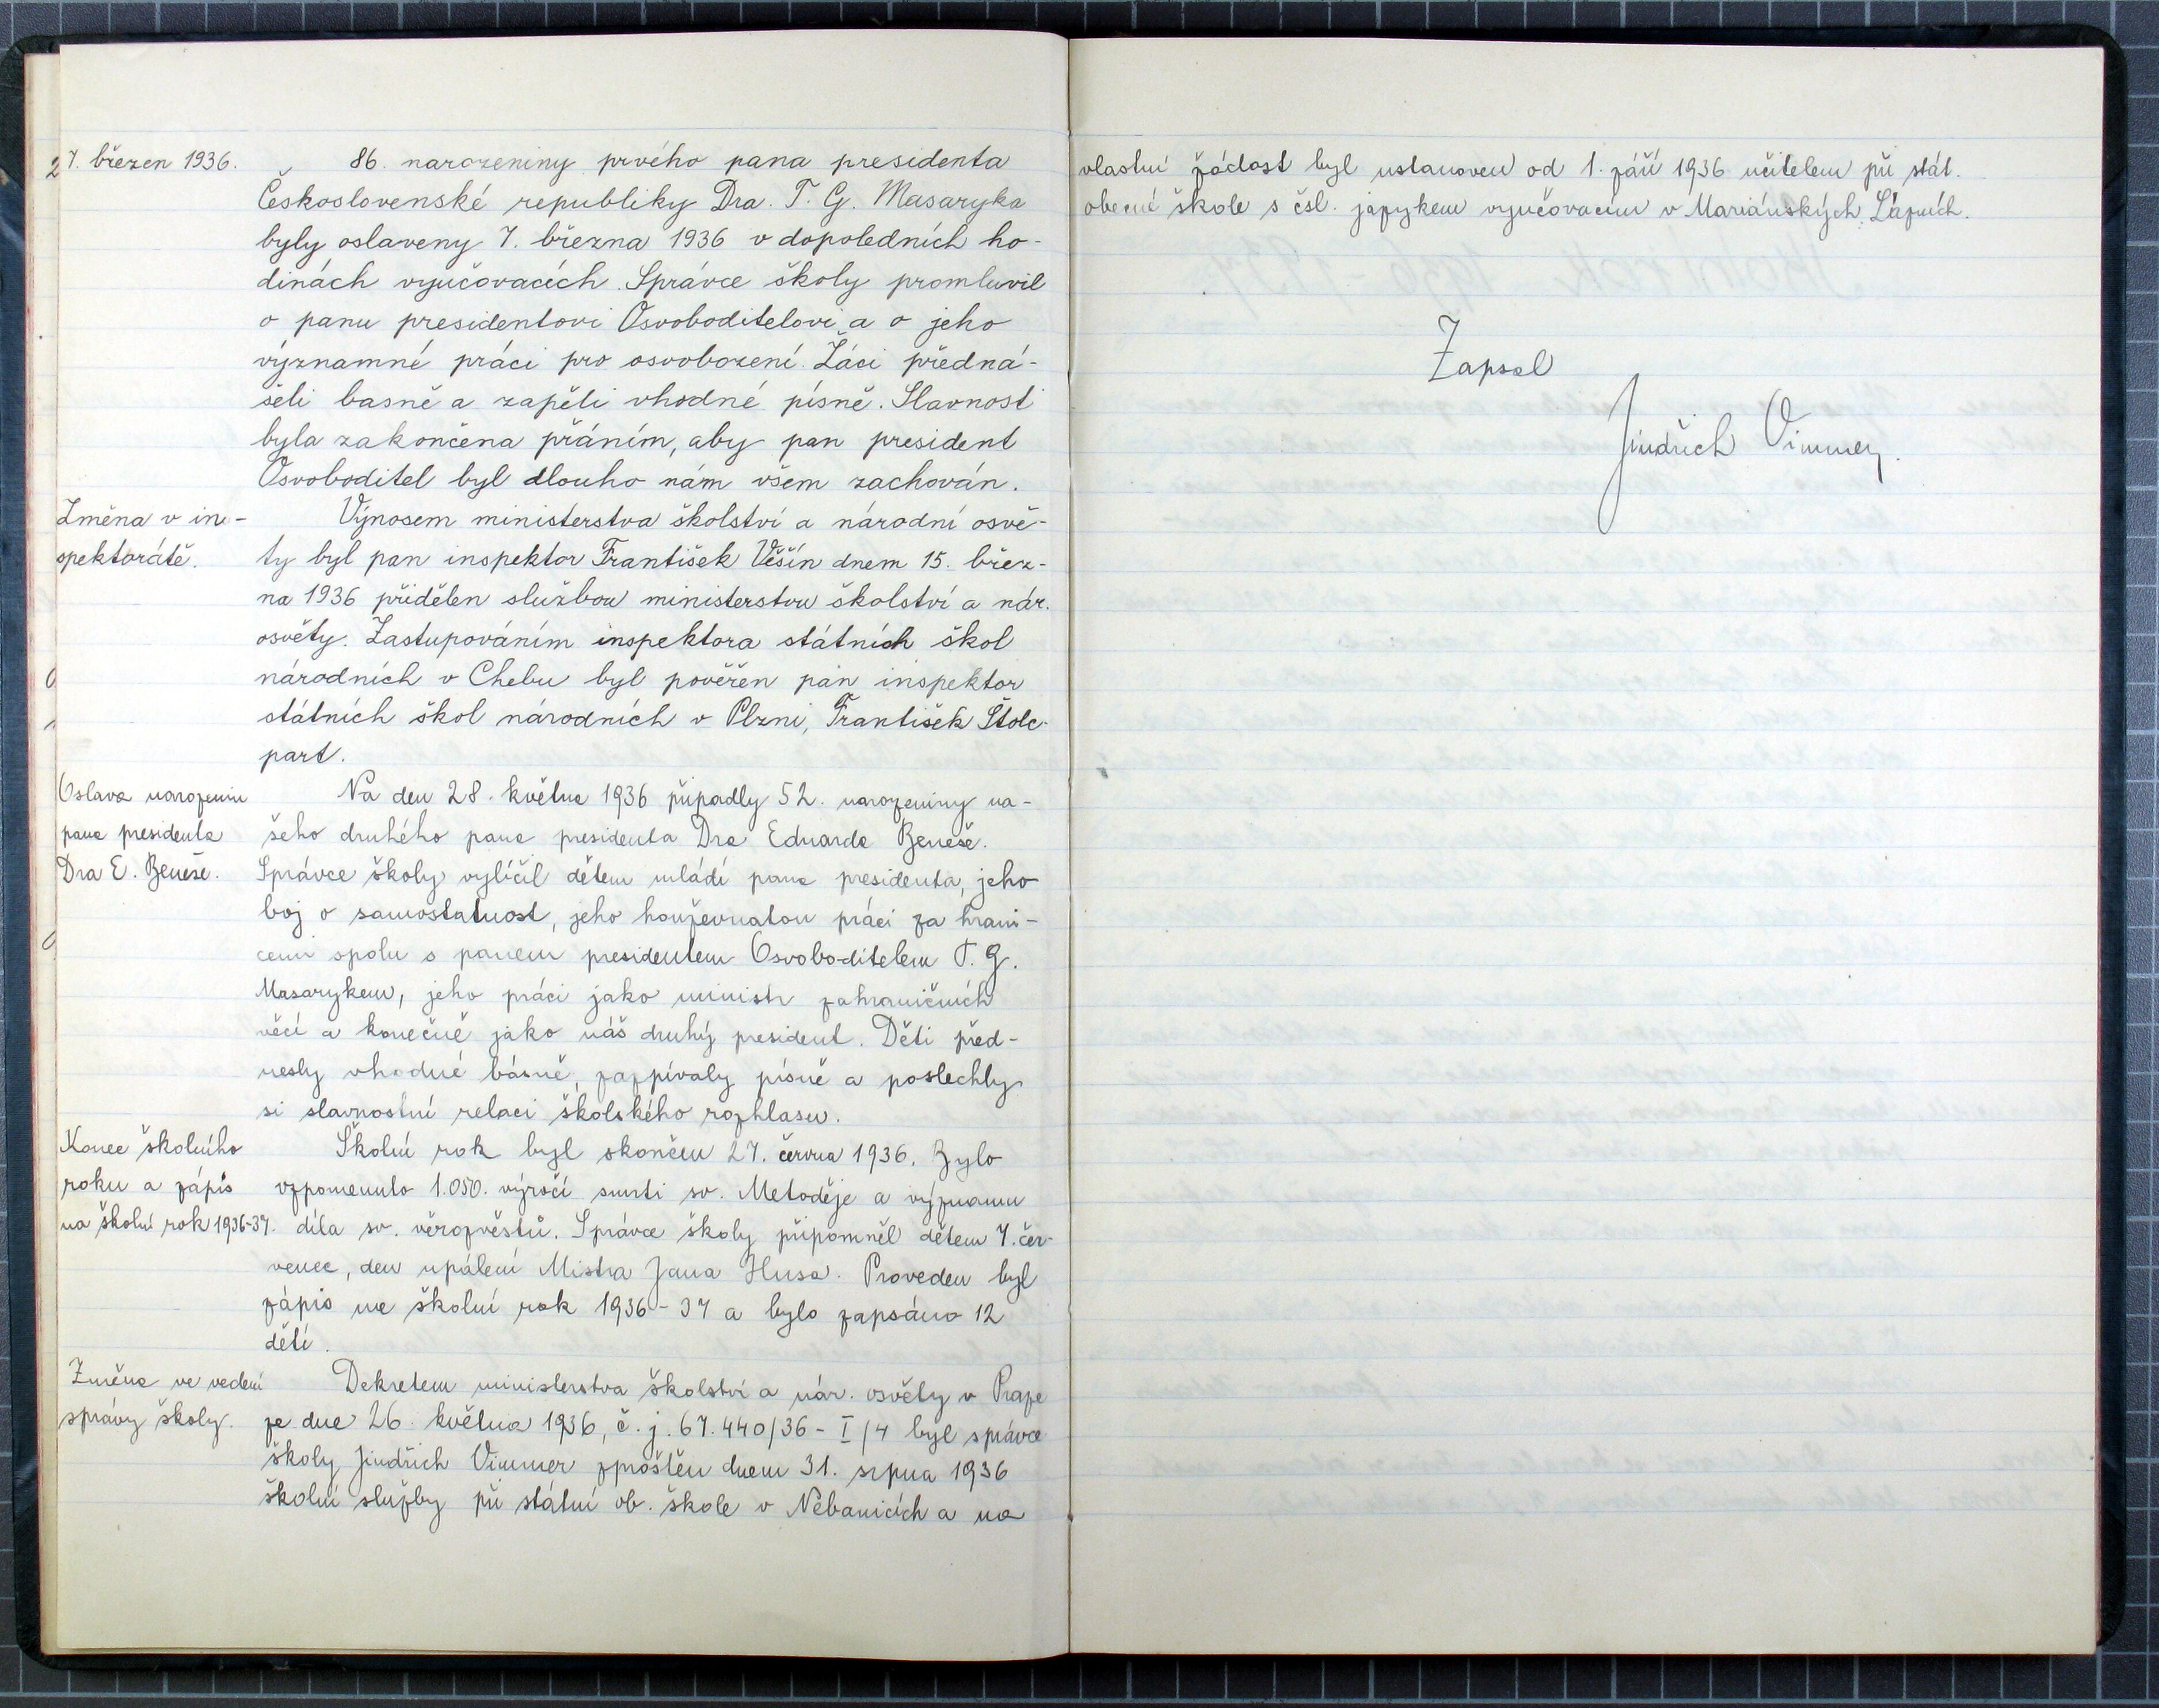 7. březen 1936.
86. narozeniny prvého pana presidenta
Československé republiky Dra. T. G. Masaryka
byly oslaveny 7. března 1936 v dopoledních ho-
dinách vyučovacích. Správce školy promluvil
o panu presidentovi Osvoboditelovi a o jeho
významné práci pro osvobození. Žáci předná-
šeli basně a zapěli vhodné písně. Slavnost
byla zakončena přáním, aby pan president
Osvoboditel byl dlouho nám všem zachován.
Změna v in-
spektorátě.
Výnosem ministerstva školství a národní osvě-
ty byl pan inspektor František Věšín dnem 15. břez-
na 1936 přidělen službou ministerstvu školství a nár.
osvěty. Zastupováním inspektora státních škol
národních v Chebu byl pověřen pán inspektor
státních škol národních v Plzni, František Štolc-
part.
Oslava narozenin
pana presidenta
Dra E. Beneše.
Na den 28. května 1936 připadly 52. narozeniny na-
šeho druhého pana presidenta Dra Eduarda Beneše.
Správce školy vylíčil dětem mládí pana presidenta, jeho
boj o samostatnost, jeho houževnatou práci za hrani-
cemi spolu s panem presidentem Osvoboditelem T. G.
Masarykem, jeho práci jako ministr zahraničních
věcí a konečně jako náš druhý president. Děti před-
nesly vhodné básně, zazpívaly písně a poslechly
si slavnostní relaci školského rozhlasu.
Konec školního
roku a zápis
na školní rok 1936-37.
Školní rok byl skončen 27. června 1936. Bylo
vzpomenuto 1.050. výročí smrti sv. Metoděje a významu
díla sv. věrozvěstů. Správce školy připomněl dětem 7. čer-
venec, den upálení Mistra Jana Husa. Proveden byl
zápis na školní rok 1936-37 a bylo zapsáno 12
dětí.
Změna ve vedení
správy školy.
Dekretem ministerstva školství a nár. osvěty v Praze
ze dne 26. května 1936, č. j. 67.440/36 - I/4 byl správce
školy Jindřich Vimmer zproštěn dnem 31. srpna 1936
školní služby při státní ob. škole v Nebanicích a na
vlastní žádost byl ustanoven od 1. září 1936 učitelem při stát.
obecné škole s čsl. jazykem vyučovacím v Mariánských Lázních.
Zapsal
Jindřich Vimmer.